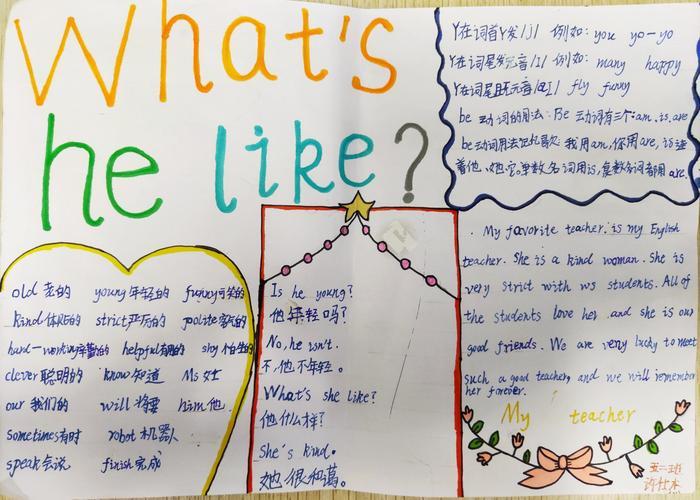 What's
he like?
Y在词首Y发/j/ 例如: you yo-yo
Y在词尾发元音/I/ 例如: many happy
Y在词尾且无元音/aI/ fly funny
be 动词的用法: Be 动词有三个:am.is.are
be动词用法记儿歌: 我用am,你用are,is连
着他、她、它。单数名词用is,复数名词都用are.
old 老的 young 年轻的 funny可笑的
kind 体贴的 strict严厉的 polite客气的
hard-working辛勤的 helpful有用的 shy 怕生的
clever 聪明的 know知道 Ms女士
our 我们的 will 将要 him 他.
sometimes有时 robot 机器人
speak会说 finish完成
Is he young?
他年轻吗?
No, he isn't.
不,他不年轻。
What's she like?
她什么样?
She's kind.
她很和蔼。
My favorite teacher. is my English
teacher. She is a kind woman. She is
very strict with us students. All of
the students love her and she is our
good friends. We are very lucky to meet
such a good teacher, and we will remember
her forever.
My teacher
五二班
许仕木